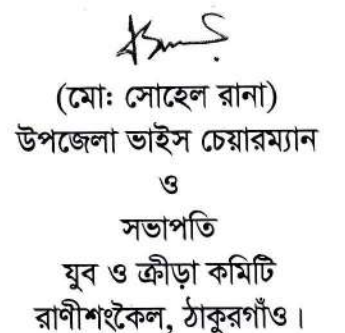 (মো: সোহেল রানা)
উপজেলা ভাইস চেয়ারম্যান
ও
সভাপতি
যুব ও ক্রীড়া কমিটি
রাণীশংকৈল, ঠাকুরগাঁও।